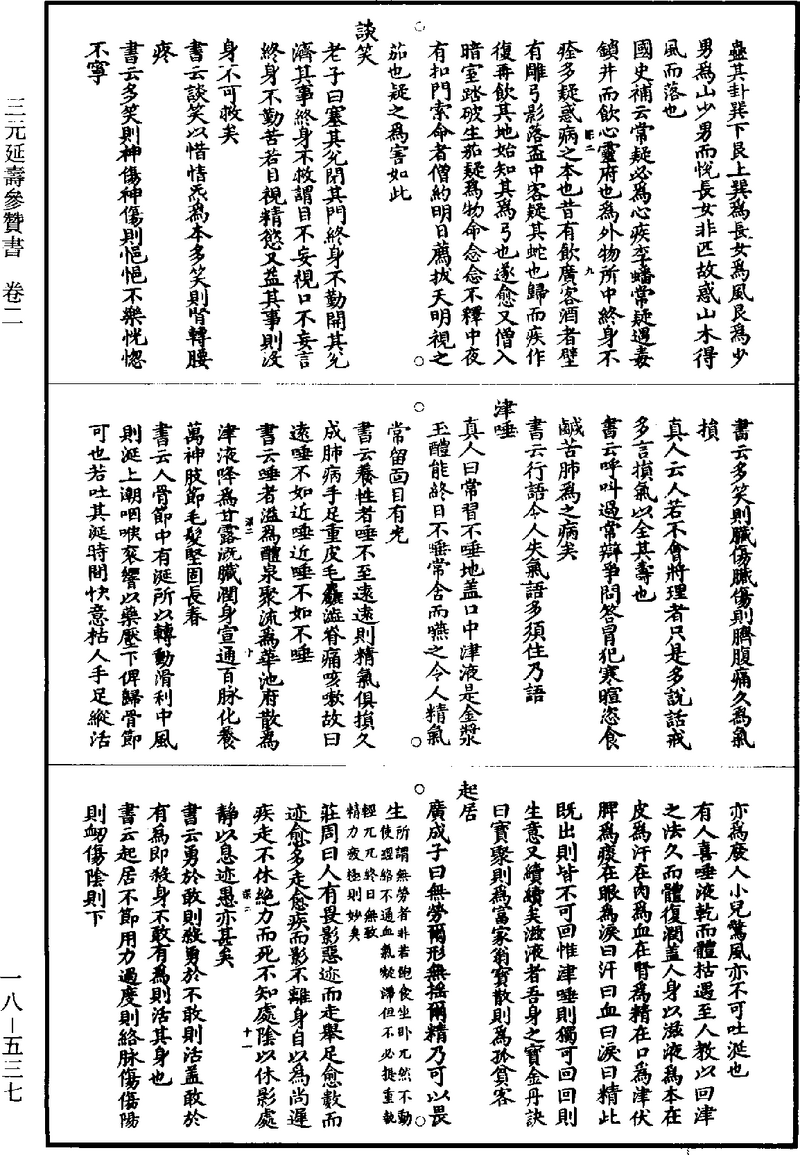 三元延壽參贊書　卷二
一八－五三七
蠱其卦巽下艮上巽爲長女爲風艮爲少
男爲山少男而悅長女非匹故惑山木得
風而落也
國史補云常疑必爲心疾李蟠常疑遇毒
鎖井而飲心靈府也爲外物所中終身不
痊多疑惑病之本也昔有飲廣客酒者壁
有雕弓影落盃中客疑其蛇也歸而疾作
復再飲其地始知其爲弓也遂愈又僧入
暗室踏破生茄疑爲物命念念不釋中夜
有扣門索命者僧約明日薦拔天明視之
茄也疑之爲害如此
談笑
老子曰塞其兌閉其門終身不勤開其兌
濟其事終身不救謂目不妄視口不妄言
終身不勤苦若目視精慾又益其事則沒
身不可救矣
書云談笑以惜精炁爲本多笑則腎轉腰
疼
書云多笑則神傷神傷則悒悒不樂恍惚
不寧
書云多笑則臟傷臟傷則臍腹痛久爲氣
損
真人云人若不會將理者只是多說話戒
多言損氣以全其壽也
書云呼叫過常辯爭問答冒犯寒暄恣食
鹹苦肺爲之病矣
書云行語令人失氣語多須住乃語
津唾
真人曰常習不唾地蓋口中津液是金漿
玉醴能終日不唾常含而嚥之令人精氣
常留面目有光
書云養性者唾不至遠遠則精氣俱損久
成肺病手足重皮毛麤澁脊痛咳嗽故曰
遠唾不如近唾近唾不如不唾
書云唾者溢爲醴泉聚流爲華池府散爲
津液降爲甘露溉臟潤身宣通百脉化養
萬神肢節毛髮堅固長春
書云人骨節中有涎所以轉動滑利中風
則涎上潮咽喉衮響以藥壓下俾歸骨節
可也若吐其涎時間快意枯人手足縱活
亦爲廢人小兒驚風亦不可吐涎也
有人喜唾液乾而體枯遇至人教以回津
之法久而體復潤蓋人身以滋液爲本在
皮爲汗在肉爲血在腎爲精在口爲津伏
脾爲痰在眼爲淚曰汗曰血曰淚曰精此
既出則皆不可回惟津唾則獨可回回則
生意又續續矣滋液者吾身之寶金丹訣
曰寶聚則爲富家翁寶散則爲孤貧客
起居
廣成子曰無勞爾形無搖爾精乃可以長
生所謂無勞者非若飽食坐卧兀然不動
使經絡不通血氣凝滯但不必提重執
輕兀兀終日無致
精力疲極則妙矣
莊周曰人有畏影惡迹而走舉足愈數而
迹愈多走愈疾而影不離身自以爲尚遲
疾走不休絶力而死不知處陰以休影處
靜以息迹愚亦甚矣
書云勇於敢則殺勇於不敢則活蓋敢於
有爲即殺身不敢有爲則活其身也
書云起居不節用力過度則絡脉傷傷陽
則衂傷陰則下